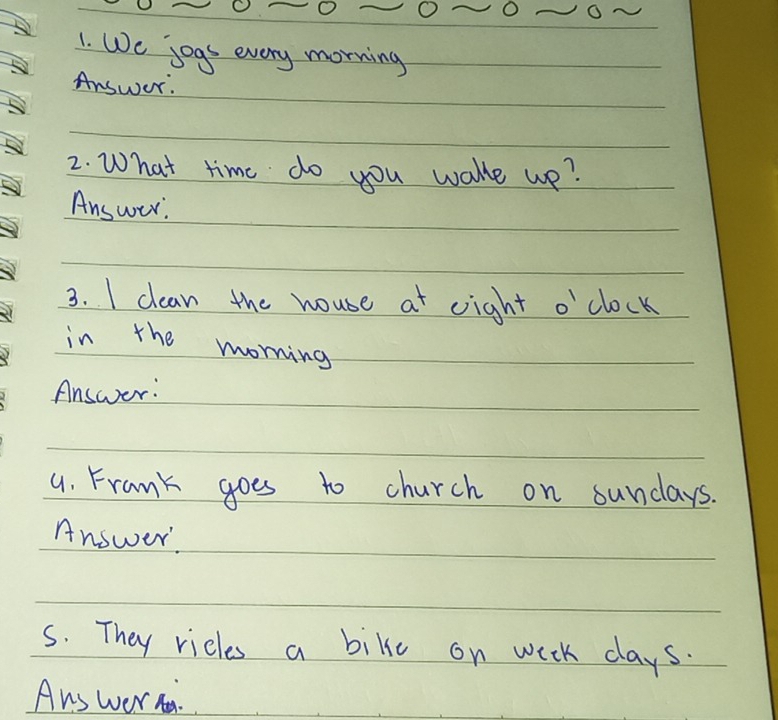 1. We jogs every morning
Answer:
2. What time do you wake up?
Answer:
3. I clean the house at eight o'clock
in the morning
Answer:
4. Frank goes to church on sundays.
Answer:
5. They rides a bike on week days.
Answer: